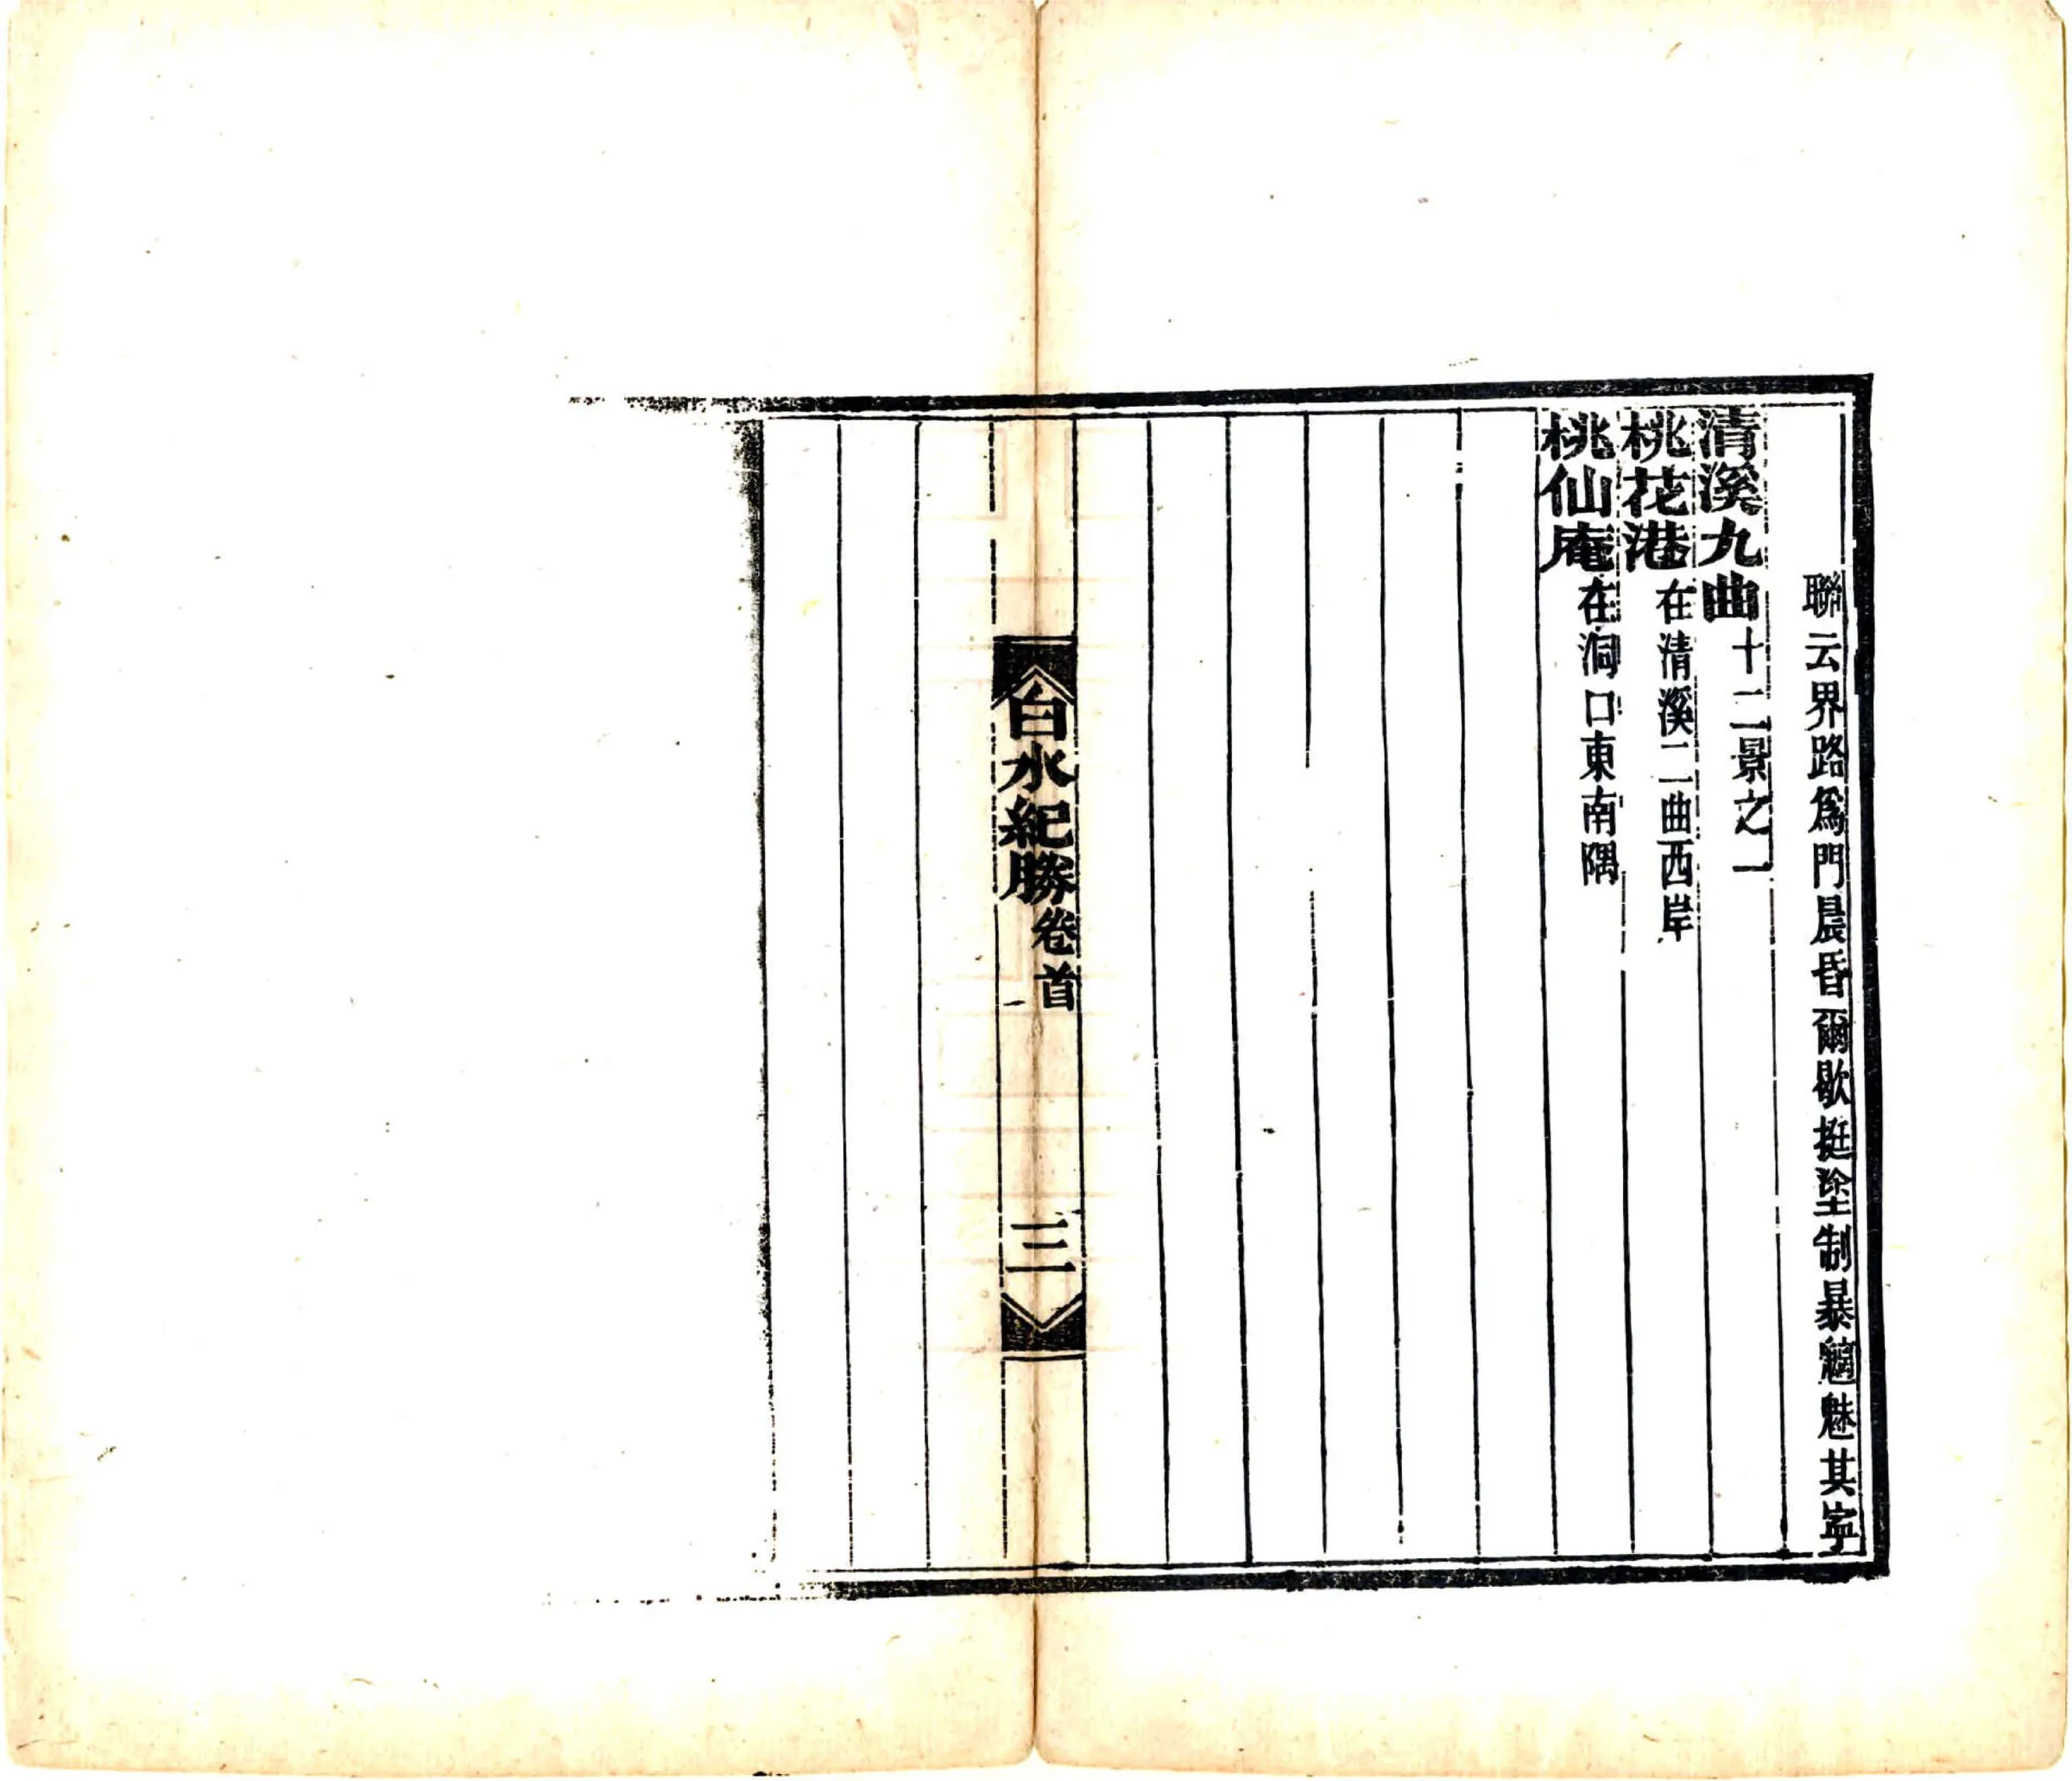 聯云界路爲門晨昏爾歇挺塗制暴魑魅其寧
清溪九曲十二景之一
桃花港在清溪二曲西岸
桃仙庵在洞口東南隅
白水紀勝卷首 三